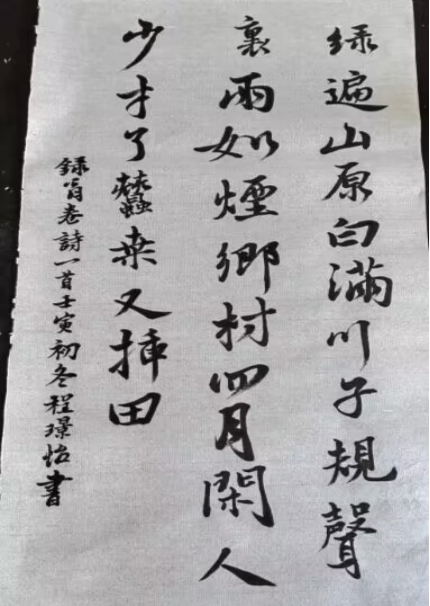 绿遍山原白滿川子規聲
裏雨如煙鄉村四月閑人
少才了蠶桒又插田
録翁卷詩一首壬寅初冬程璟怡書